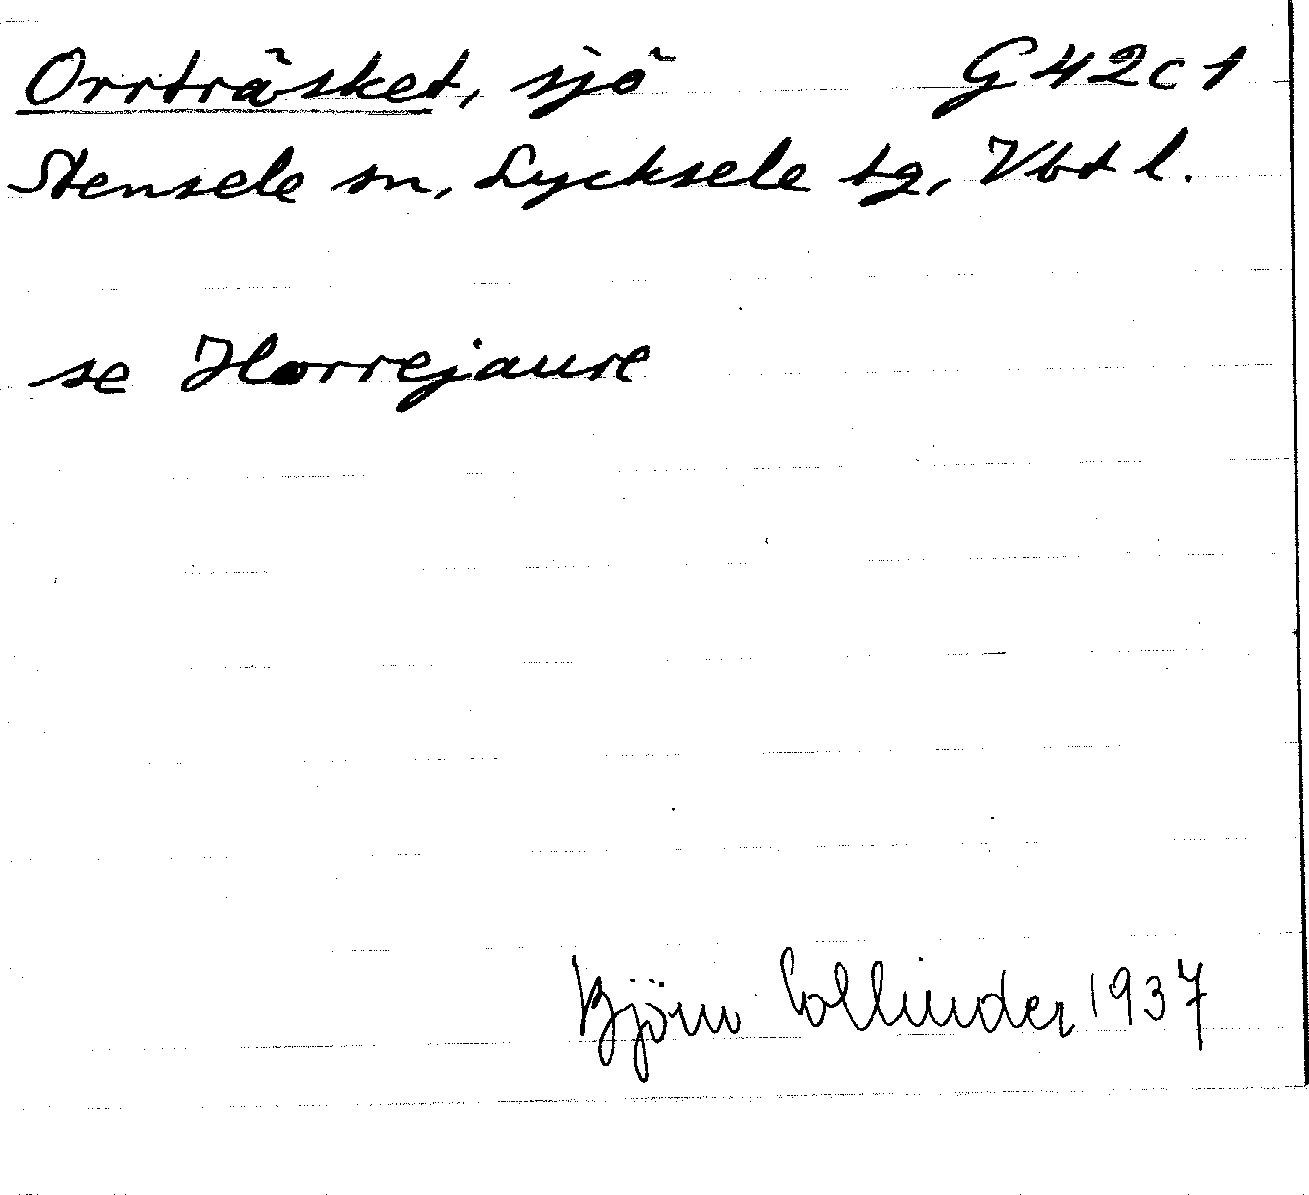 Orrträsket, sjö G42c1
Stensele sn, Lycksele tg, Vbt l.
se Horrejaure
Björn Collinder 1937